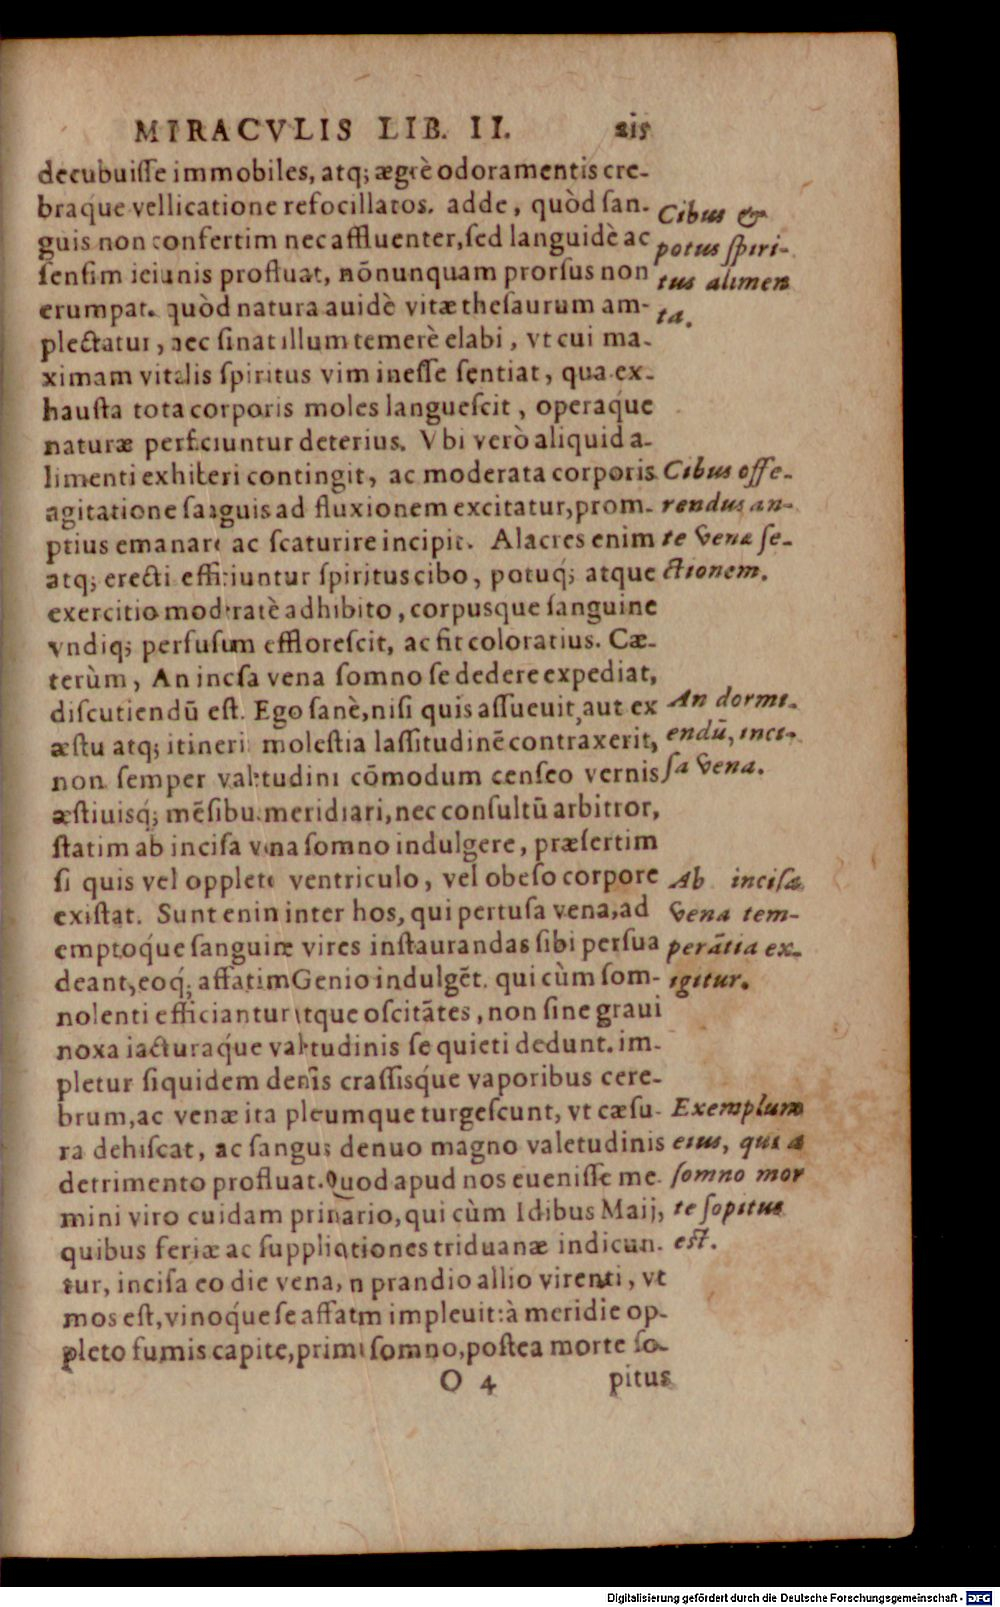 MIRACVLIS LIB. II. 215
decubuiſſe immobiles, atq; ægrè odoramentis cre-
braq́ue vellicatione refocillatos. adde, quòd ſan-
guis non confertim nec affluenter, ſed languidè ac
ſenſim ieiunis profluat, nōnunquam prorſus non
erumpat. quòd natura auidè vitæ theſaurum am-
plectatur, nec ſinat illum temerè elabi, vt cui ma-
ximam vitalis ſpiritus vim ineſſe ſentiat, qua ex-
hauſta tota corporis moles langueſcit, operaq́ue
naturæ perficiuntur deterius. Vbi verò aliquid a-
limenti exhiberi contingit, ac moderata corporis
agitatione ſanguis ad fluxionem excitatur, prom-
ptius emanare ac ſcaturire incipit. Alacres enim
atq; erecti efficiuntur ſpiritus cibo, potuq́; atque
exercitio moderatè adhibito, corpusque ſanguine
vndiq; perfuſum effloreſcit, ac fit coloratius. Cæ-
terùm, An inciſa vena ſomno ſe dedere expediat,
diſcutiendū eſt. Ego ſanè, niſi quis aſſueuit, aut ex
æſtu atq; itineris moleſtia laſſitudinē contraxerit,
non ſemper valetudini cōmodum cenſeo vernis
æſtiuisq́; mēſibus meridiari, nec conſultū arbitror,
ſtatim ab inciſa vena ſomno indulgere, præſertim
ſi quis vel oppleto ventriculo, vel obeſo corpore
exiſtat. Sunt enim inter hos, qui pertuſa vena, ad
emptoq́ue ſanguine vires inſtaurandas ſibi perſua
deant, eoq́; affatim Genio indulgēt. qui cùm ſom-
nolenti efficiantur atque oſcitātes, non ſine graui
noxa iacturaq́ue valetudinis ſe quieti dedunt. im-
pletur ſiquidem denſis craſſisq́ue vaporibus cere-
brum, ac venæ ita plerumque turgeſcunt, vt cæſu-
ra dehiſcat, ac ſanguis denuo magno valetudinis
detrimento profluat. Quod apud nos eueniſſe me-
mini viro cuidam primario, qui cùm Idibus Maij,
quibus feriæ ac ſupplicationes triduanæ indicun-
tur, inciſa eo die vena, in prandio allio virenti, vt
mos eſt, vinoq́ue ſe affatim impleuit: à meridie op-
pleto fumis capite, primùm ſomno, poſtea morte ſo-
O 4 pitus
Cibus &
potus ſpiri-
tus alimen
ta.
Cibus offe-
rendus an-
te venæ ſe-
ctionem.
An dormi-
endū, inci-
ſa vena.
Ab inciſa
vena tem-
perātia ex-
igitur.
Exemplum
eius, qui a
ſomno mor
te ſopitus
eſt.
Digitalisierung gefördert durch die Deutsche Forschungsgemeinschaft - DFG